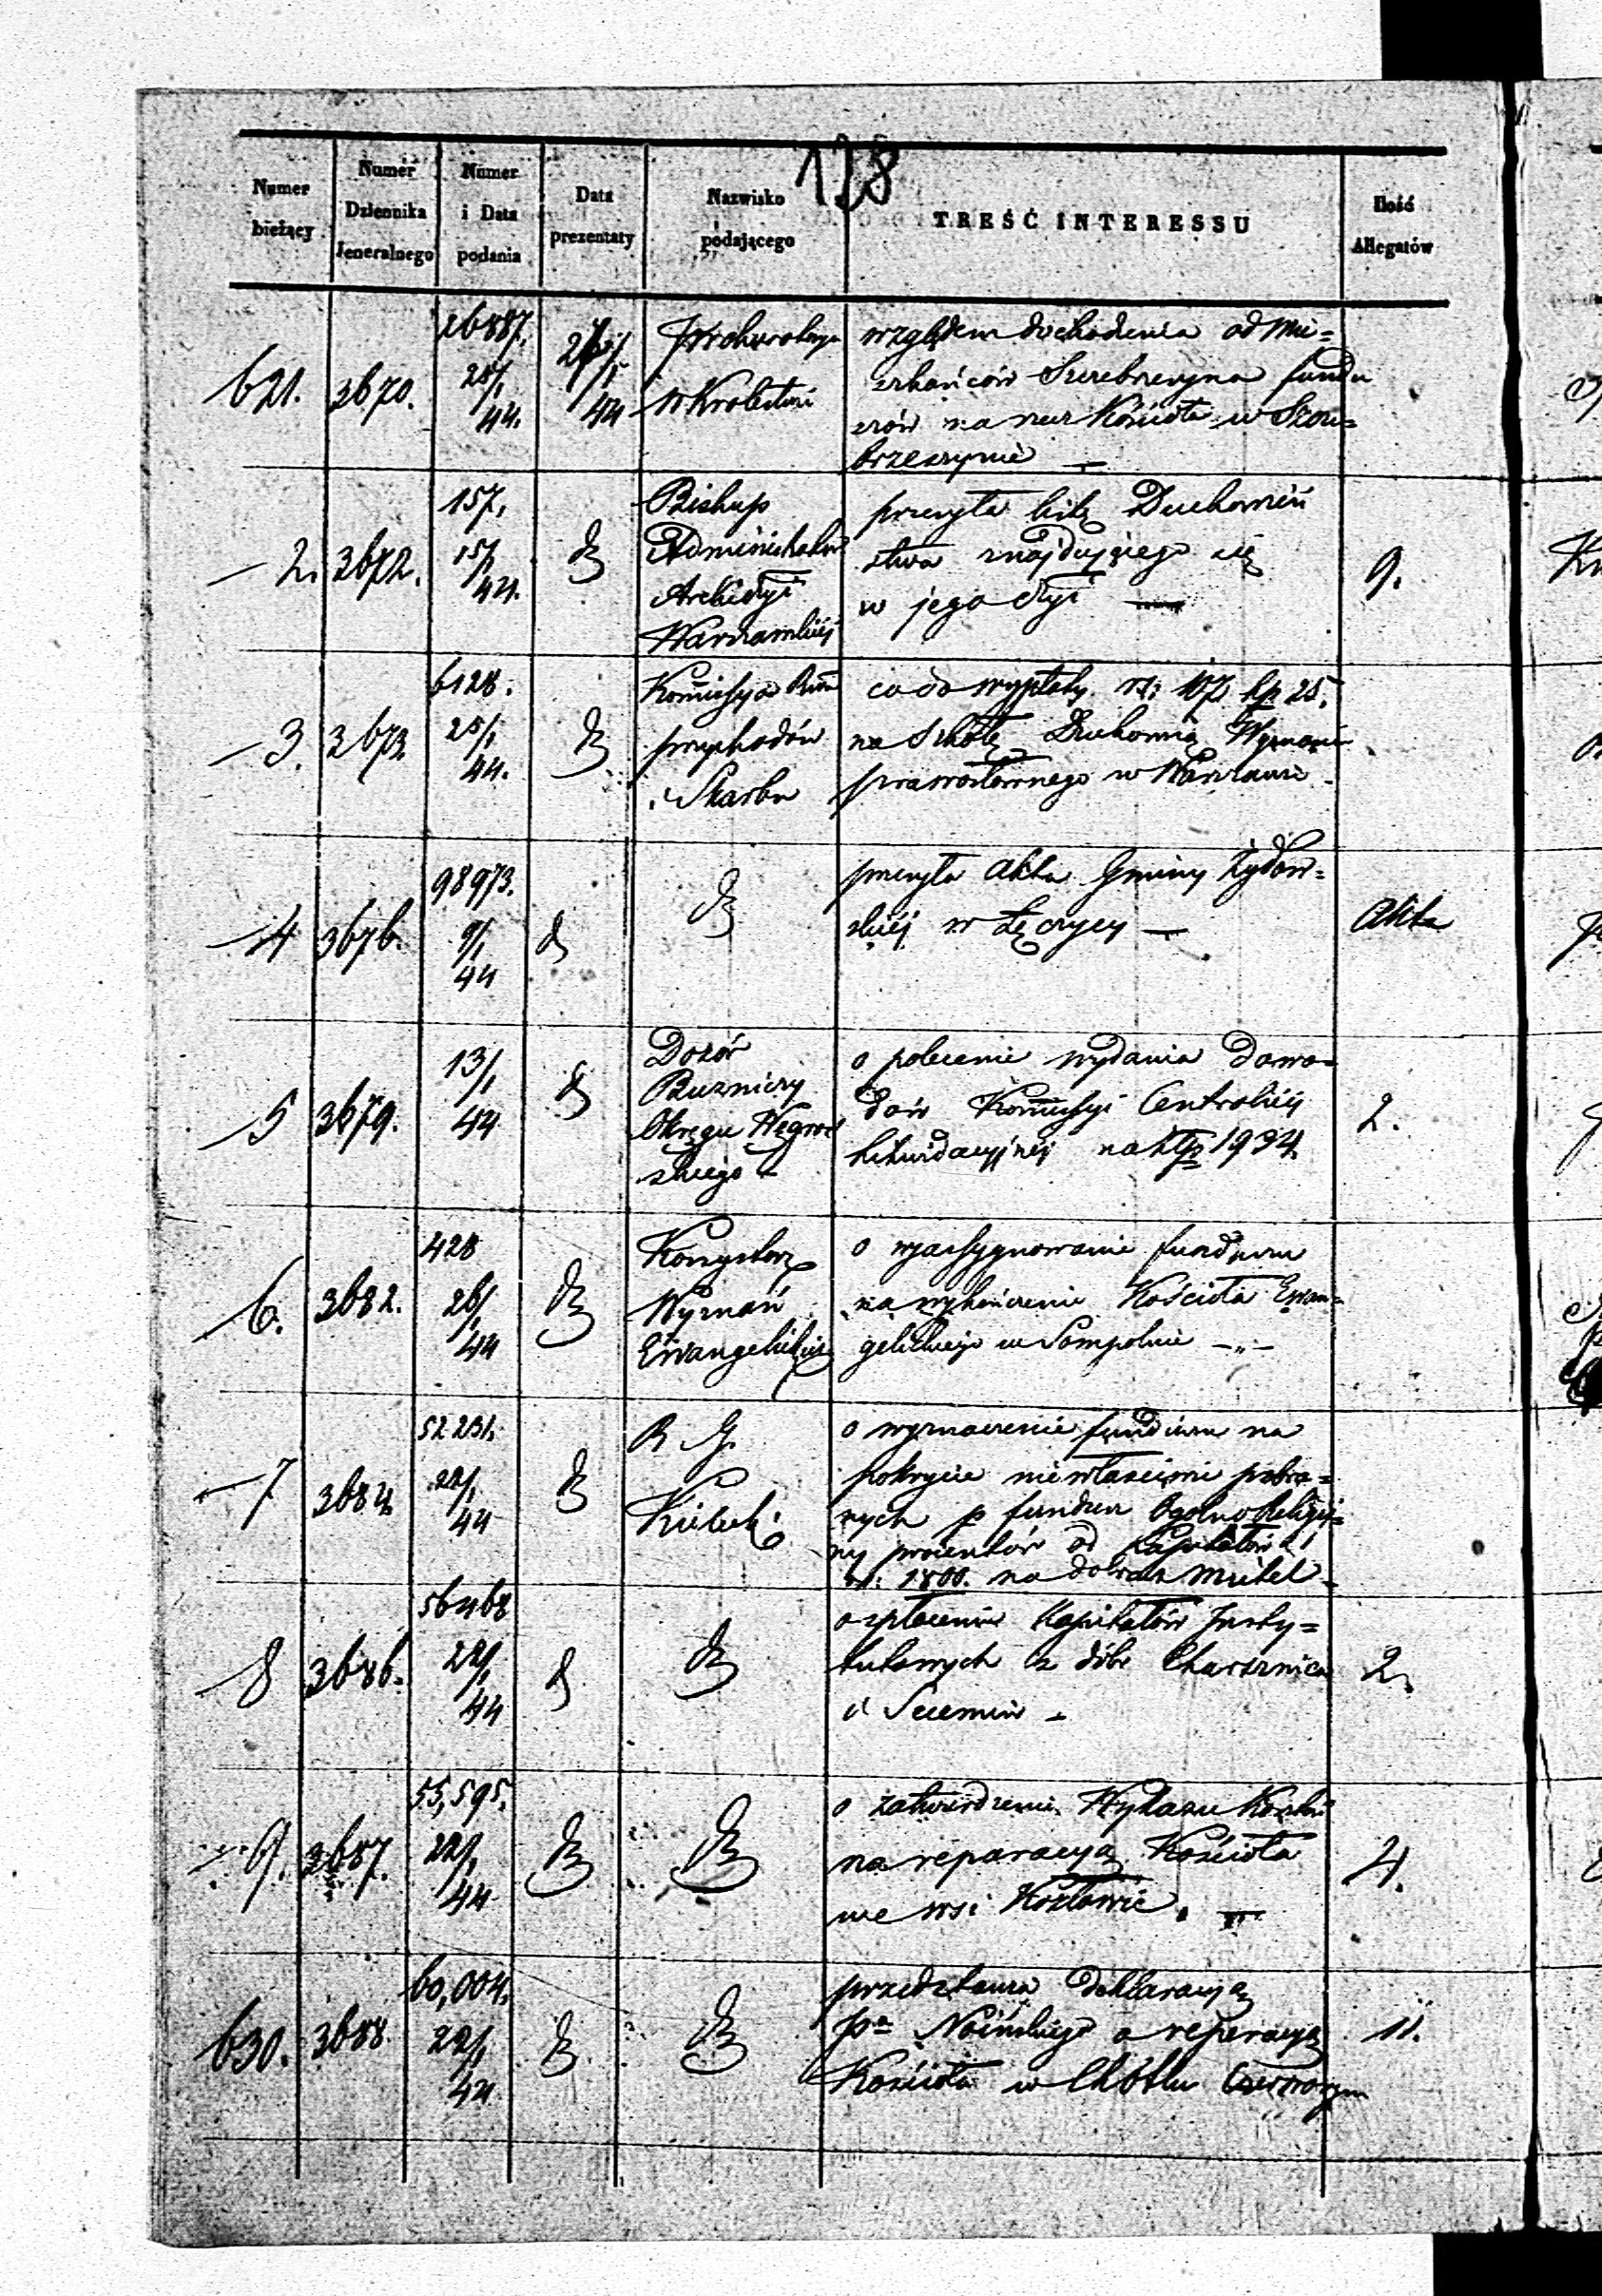 128
Numer bieżący
Numer Dziennika Jeneralnego
Numer i Data podania
Data prezentaty
Nazwisko podającego
TREŚĆ INTERESSU
Ilość Allegatów
621.
3670.
26887.
25/1
44.
44
Prokurator
w Królestwie
względem dochodzenia od Mie=
szkańców Szczebrzeszyna fundu
szów na rzecz Kościoła w Szcze=
brzeszynie —
— 2.
3672.
157.
15/1
44.
dt
Biskup
Administrator
Archidyi
Warszawskiej
przesyła listę Duchowień
stwa znajdującego się
w jego dyi —
9.
— 3.
3673
6128.
25/1
44.
dt
Kommissya Rząd
przychodów
i Skarbu
co do wypłaty rs: 107 kp 25.
na Szkołę Duchowną Wyznania
prawosławnego w Warszawie -
— 4
3676.
98973.
9/1
44
dt
dt
przesyła akta Gminy Żydow=
skiej w Łęczycy —
Akta
— 5
3679.
13/1
44
dt
Dozór
Bużniczy
Okręgu Węgrow
skiego -
o polecenie wydania dowo=
dów Kommissyi Centralnej
Likwidacyjnej na złp 1934.
2.
— 6.
3682.
428
26/1
44
dt
Konsystorz
Wyznań
Ewangelickich
o wyassygnowanie funduszu
na wykończenie Kościoła Ewan=
gelickiego w Sompolnie —„—
— 7
3684
52231.
22/1
44
dt
R. G.
Kielecki
o wyznaczenie funduszu na
pokrycie niewłaściwie pobra=
nych p fundusz Ogólno Religij=
ny procentów od Kapitałów
rs: 1800. na dobrach
— 8
3686.
56468
22/1
44
dt
dt
o spłacenie Kapitałów Insty=
tutowych z dóbr Charsznica
i Secemin —
2.
— 9.
3687.
55,595.
22/1
44
dt
dt
o zatwierdzenie Wykazu Kosztów
na reparacyą Kościoła
we wsi Kozłowie. —
4.
630.
3688
60,004.
22/1
44
dt
dt
przedstawia deklaracyą
Pa o reperacyą
Kościoła w Chotlu Czerwonym
11.